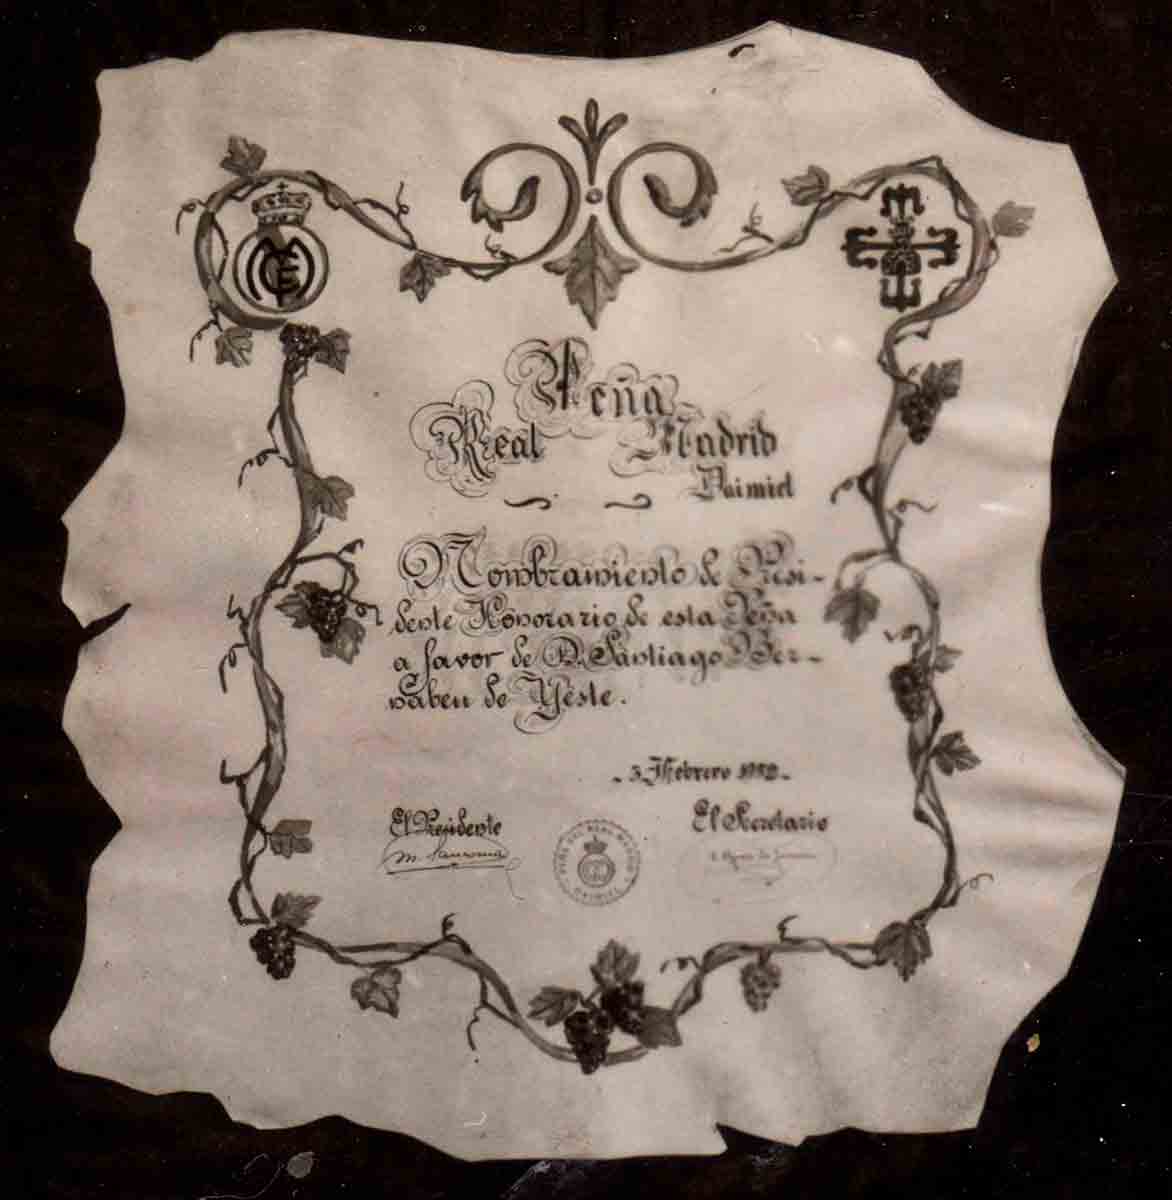 Peña
Real Madrid
Daimiel
Nombramiento de Presi-
dente Honorario de esta Peña
a favor de D. Santiago Ber-
nabeu de Yeste.
- 3 Febrero 1952 -
El Presidente
El Secretario
PEÑA DEL REAL MADRID
DAIMIEL